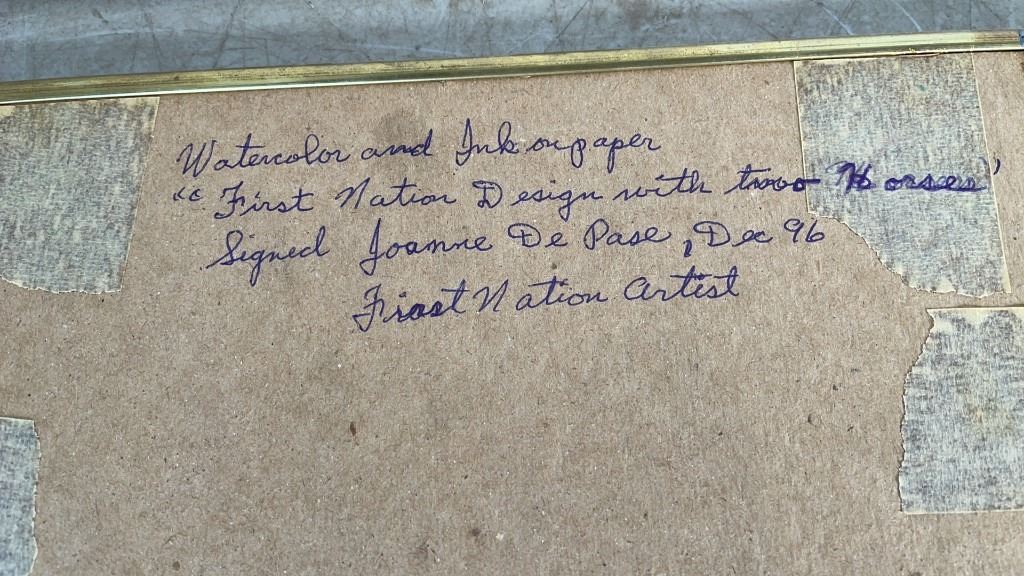 Watercolor and Ink on paper
“First Nation Design with two Horses”
Signed Joanne De Pase, Dec 96
First Nation Artist